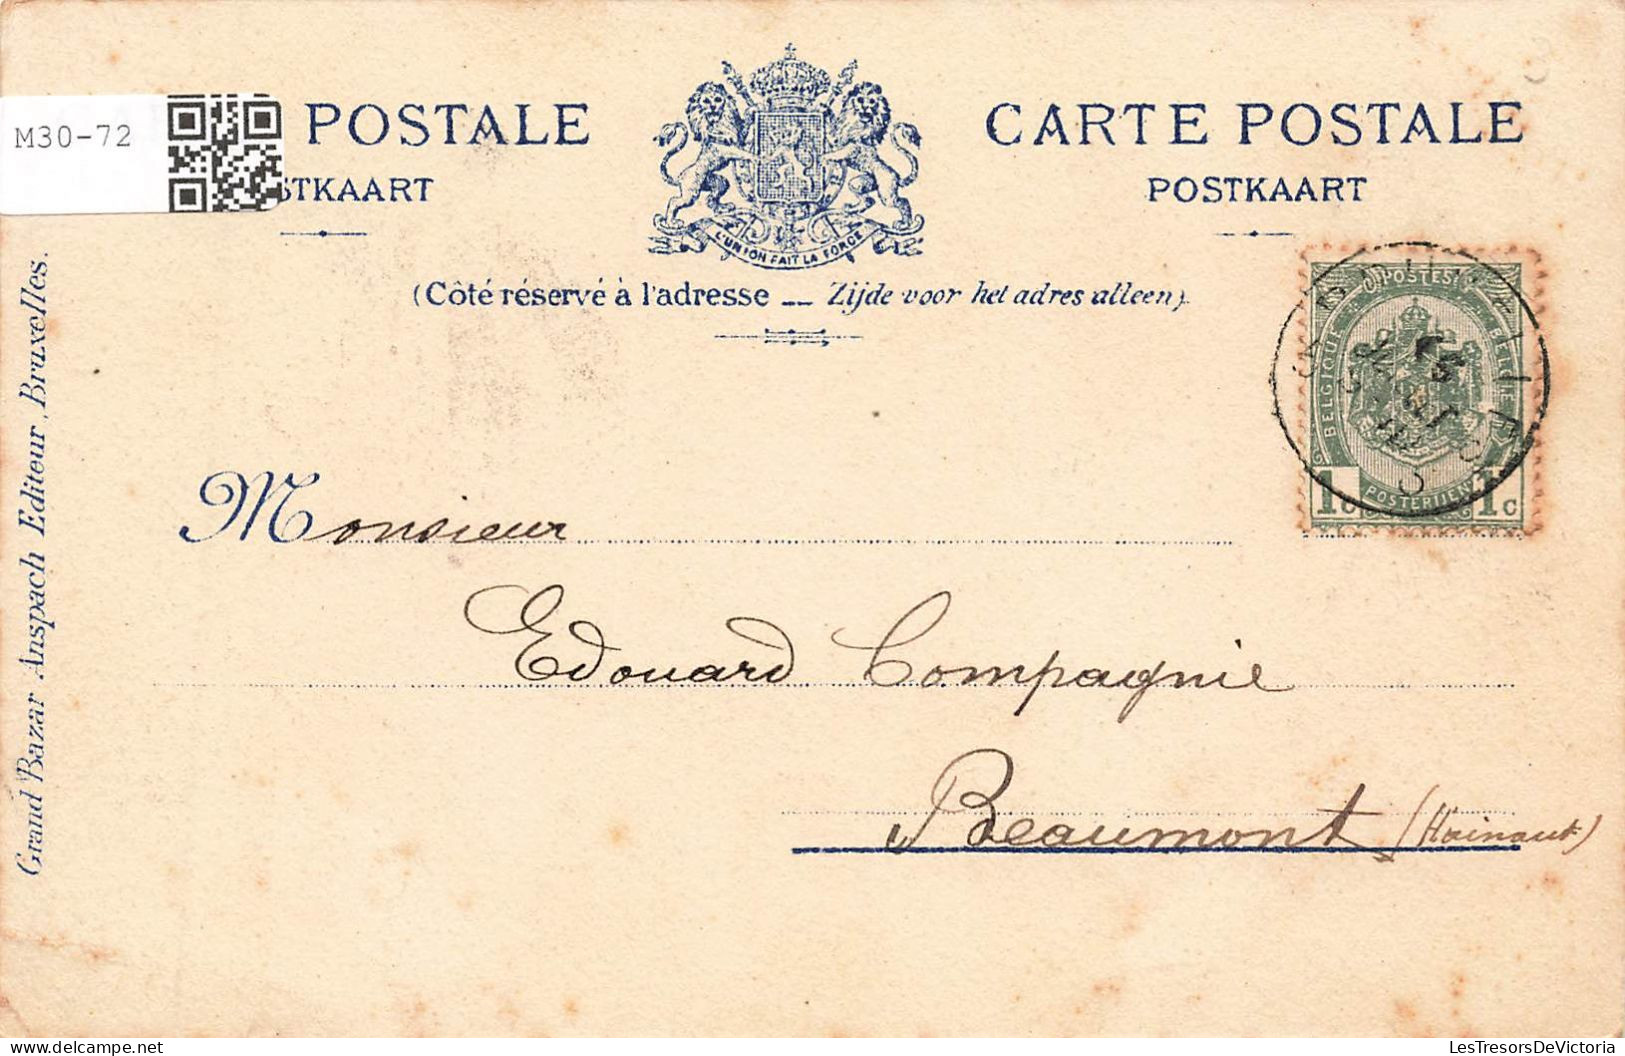 M30-72
POSTALE
CARTE POSTALE
STKAART
POSTKAART
L'UNION FAIT LA FORCE
(Côté réservé à l'adresse — Zijde voor het adres alleen)
POSTES
BELGIQUE BELGIE
POSTERIJEN
1c 1c
Monsieur
Edouard Compagnie
Beaumont (Hainaut)
Grand Bazar Anspach Editeur, Bruxelles.
LesTresorsDeVictoria